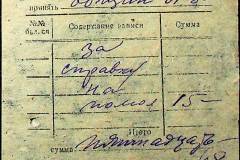 принять
№№ Содержание записи Сумма
за
справки
на
помол 15-
Итого
сумма пятнадцать